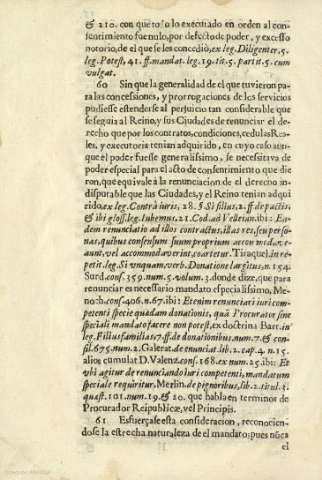 & 210. con que todo lo executado en orden al con-
sentimiento fue nulo, por defecto de poder, y excesso
notorio, de el que se les concediò, ex leg. Diligenter, 5.
leg. Potest, 41. ff. mandat. leg. 19. tit. 5. partit. 5. cum
vulgat.
60 Sin que la generalidad de el que tuvieron pa-
ra las concessiones, y prorrogaciones de los servicios
pudiesse estenderse al perjuicio tan considerable que
se seguia al Reino, y sus Ciudades de renunciar el de-
recho que por los contratos, condiciones, cedulas Rea-
les, y executoria tenian adquirido, en cuyo caso aun-
que el poder fuesse generalissimo, se necessitava de
poder especial para el acto de consentimiento que die
ron, que equivale à la renunciacion de el derecho in-
disputable que las Ciudades, y el Reino tenian adqui
rido, ex leg. Contra iuris, 28. § Si filius, 2. ff. de pactis,
& ibi gloss. leg. Iubemus, 21. Cod. ad Velleian. ibi: Ea-
dem renunciatio ad illos contractus, illas res, seu perso-
nas, quibus consensum suum proprium
aunt, vel accommodaverint, coartetur. Tiraquel. in re-
petit. leg. Si unquam, verb. Donatione largitus, n. 154.
Surd. cons. 359. num. 5. volum. 3. donde dize, que para
renunciar es necessario mandato especialissimo, Me-
noch. cons. 406. n. 67. ibi: Etenim renunciari iuri com-
petenti specie quadam donationis, quâ Procurator sine
speciali mandato facere non potest, ex doctrina Barr. in
leg. Filius familias 7. ff. de donationibus, num. 7. & con-
sil. 675. num. 2. Galerat. de renunciat. lib. 2. cap. 4. n. 15.
alios cumulat D. Valenz. cons. 168. ex num. 25. ibi: Et
ubi agitur de renunciando iuri competenti, mandatum
speciale requiritur, Merlin. de pignoribus, lib. 2. titul. 1.
quæst. 101. num. 19. & 20. que habla en terminos de
Procurador Reipublicæ, vel Principis.
61 Esfuerçase esta consideracion, reconocien-
dose la estrecha naturaleza de el mandato: pues nunca
el